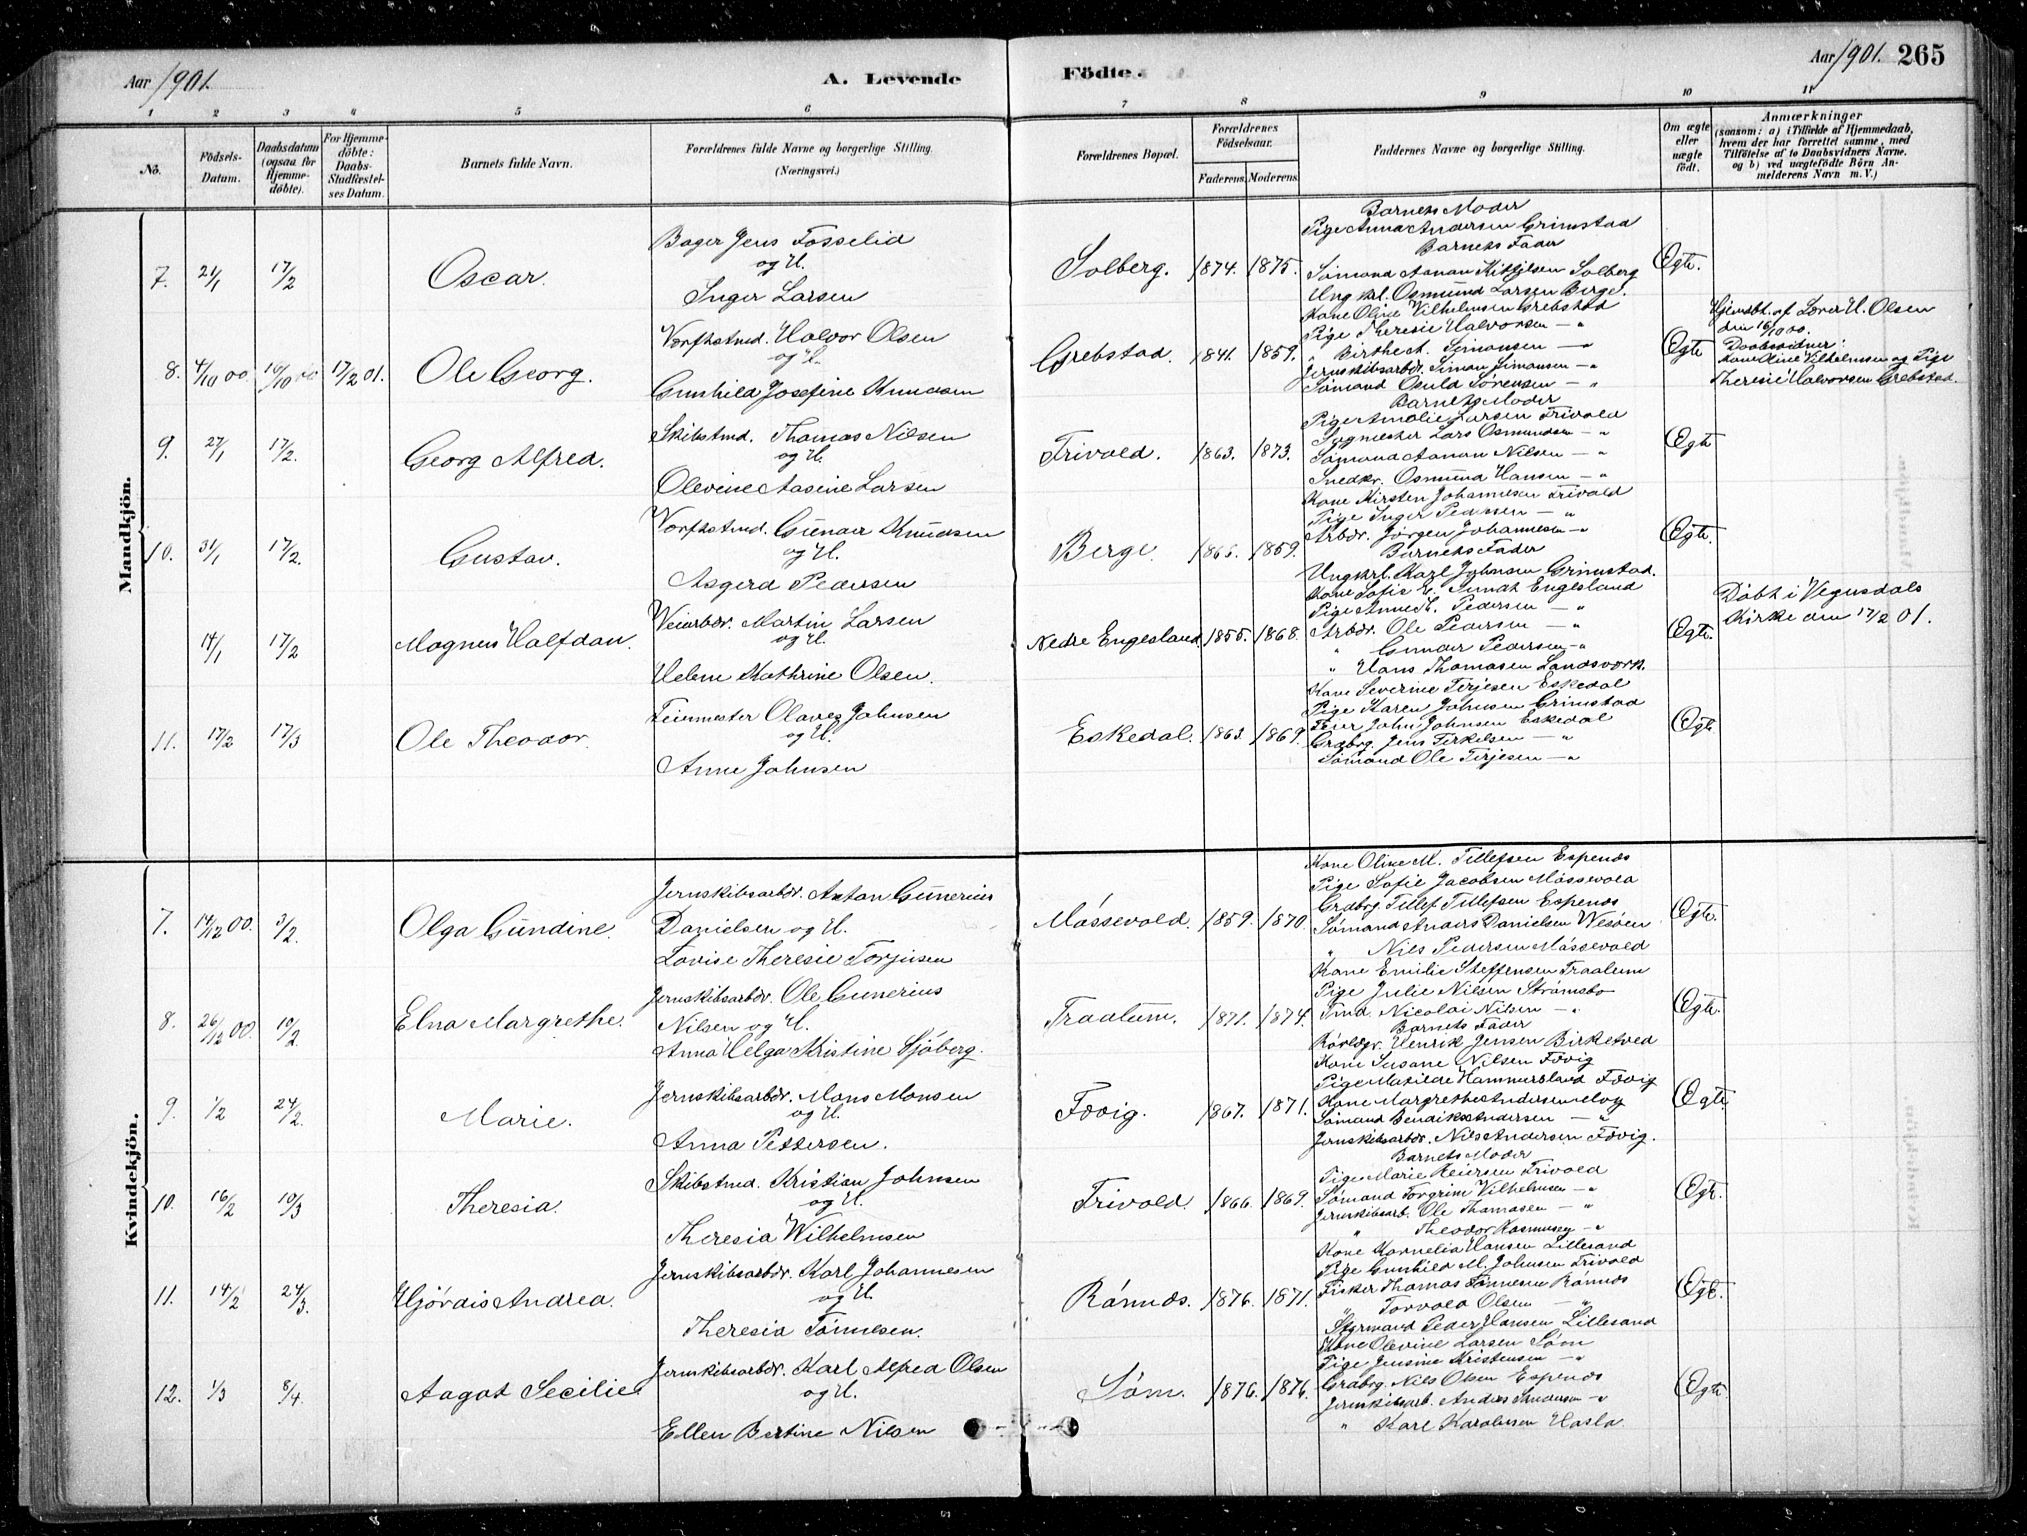 Aar 1901.
A. Levende
Födte.
Aar 1901. 265
1 2 3 4 5 6 7 8 9 10 11
No.
Födsels-Datum.
Daabsdatum (ogsaa for Hjemme-döbte).
For Hjemme-döbte: Daabs-Stadfæstel-ses Datum.
Barnets fulde Navn.
Forældrenes fulde Navne og borgerlige Stilling. (Næringsvei.)
Forældrenes Bopæl.
Forældrenes Födselsaar.
Faderens. Moderens.
Faddernes Navne og borgerlige Stilling.
Om ægte eller uægte födt.
Anmærkninger
(saasom: a) i Tilfælde af Hjemmedaab, hvem der har forrettet samme, med Tilföielse af to Daabsvidners Navne. og b) ved uægtefödte Börn An-melderens Navn m. V.)
Mandkjön.
7. 21/1 17/2 Oscar.
Bager Jens Fosselid
og H.
Inger Larsen
Solberg. 1874. 1875.
Barnets Moder
Pige Anna Andersen Grimstad
Barnets Fader
Sømand Aanan Kittilsen Solberg
Ungkrl. Osmund Larsen Berge.
Ægte.
8. 4/10 00 16/10 00 17/2 01. Ole Georg.
Værftstmd. Halvor Olsen
og H.
Gunhild Josefine Knudsen
Grebstad. 1841. 1859.
Kone Oline Vilhelmsen Grebstad
Pige Theresie Halvorsen — "
" Birthe A. Simonsen — "
Jernskibsarbdr. Simon Simonsen — "
Sømand Osuld Sørensen — "
Ægte
Hjemdbt. af Lærer H. Olsen
den 16/10 00.
Daabsvidner:
Kone Oline Vilhelmsen og Pige
Theresie Halvorsen Grebstad.
9. 27/1 17/2. Georg Alfred.
Skibstmd. Thomas Nilsen
og H.
Olevine Aasine Larsen
Trivold. 1863. 1873.
Barnets Moder
Pige Amalie Larsen Trivold
Bygmester Lars Osmundsen — "
Sømand Aanan Nilsen — "
Snedkr. Osmund Hansen — "
Ægte
10. 31/1 17/2. Gustav.
Værftstmd. Gunder Knudsen
og H.
Asgerd Pedersen
Berge 1866. 1859.
Kone Kirsten Johannesen Trivold
Pige Inger Pedersen — "
Arbdr. Jørgen Johannesen — "
Barnets Fader
Ungkrl. Karl Johnsen Grimstad.
Ægte.
14/1 17/2 Magnus Halfdan.
Veiarbdr. Martin Larsen
og H.
Helene Kathrine Olsen.
Nedre Engesland 1855. 1868.
Kone Sofie E. Engesland
Pige Anne K. Pedersen — "
Arbdr. Ole Pedersen — "
" Gunder Pedersen — "
" Hans Thomasen Landsværk.
Ægte.
Döbt i Vegusdals
Kirke den 17/2 01.
11. 17/2 17/3 Ole Theodor.
Feiermester Olaves Johnsen
og H.
Anne Johnsen
Eskedal. 1863. 1869.
Kone Severine Terjesen Eskedal
Pige Karen Johnsen Grimstad
Feier John Johnsen Eskedal
Grdbrg. Jens Terkelsen — "
Sømand Ole Terjesen — "
Ægte
Kvindekjön.
7. 14/12 00. 3/2. Olga Gundine.
Jernskibsarbdr. Anton Gunerius
Danielsen og H.
Lovise Theresie Torjusen
Møssevold. 1859. 1870.
Kone Oline M. Tellefsen Espenes
Pige Sofie Jacobsen Møssevold
Grdbrg Tellef Tellefsen Espenes
Sømand Anders Danielsen Wesøen
" Nils Pedersen Møssevold
Ægte.
8. 26/12 00. 10/2. Elna Margrethe.
Jernskibsarbdr. Ole Gunerius
Nilsen og H.
Anna Helga Kristine Sjöberg.
Traalum. 1871. 1874.
Kone Emilie Steffensen Traalum
Pige Julie Nilsen Strømsbo
Tmd. Nicolai Nilsen — "
Barnets Fader
Henrik Jensen Birketved
Ægte.
9. 1/2 24/2. Marie.
Jernskibsarbdr. Mons Monsen
og H.
Anna Pettersen.
Fævig. 1867. 1871.
Kone Susane Nilsen Fævig
Pige Matilde Hammersland Fævig
Kone Margrethe Andersen
Sømand Bendiks Andersen — "
Jernskibsarbdr. Nils Andersen Fævig.
Ægte.
10. 16/2 10/3 Theresia.
Skibstmd. Kristian Johnsen
og H.
Theresia Wilhelmsen
Trivold. 1866. 1869.
Barnets Moder
Pige Marie Reiersen Trivold
Sømand Torgrim Vilhelmsen — "
Jernskibsarb. Ole Thomasen — "
" Theodor Rasmusen — "
Ægte.
11. 14/2 24/3. Hjördis Andrea.
Jernskibsarbdr. Karl Johannesen
og H.
Theresia Tønnesen.
Rønnes. 1876. 1871.
Kone Kornelia Hansen Lillesand
Pige Gunhild M. Johnsen Trivold
Fisker Thomas Tønnesen Rønnes
" Torvald Olsen — "
Styrmand Peder Hansen Lillesand
Ægte.
12. 1/3 8/4. Aagot Secilie
Jernskibsarbdr. Karl Alfred Olsen
og H.
Ellen Bertine Nilsen
Søm. 1876. 1876.
Kone Olevine Larsen Søm
Pige Jensine Kristensen — "
Grdbrg. Nils Olsen Espenes
Jernskibsarb. Anders — "
" Karl Karolusen Hasla.
Ægte.